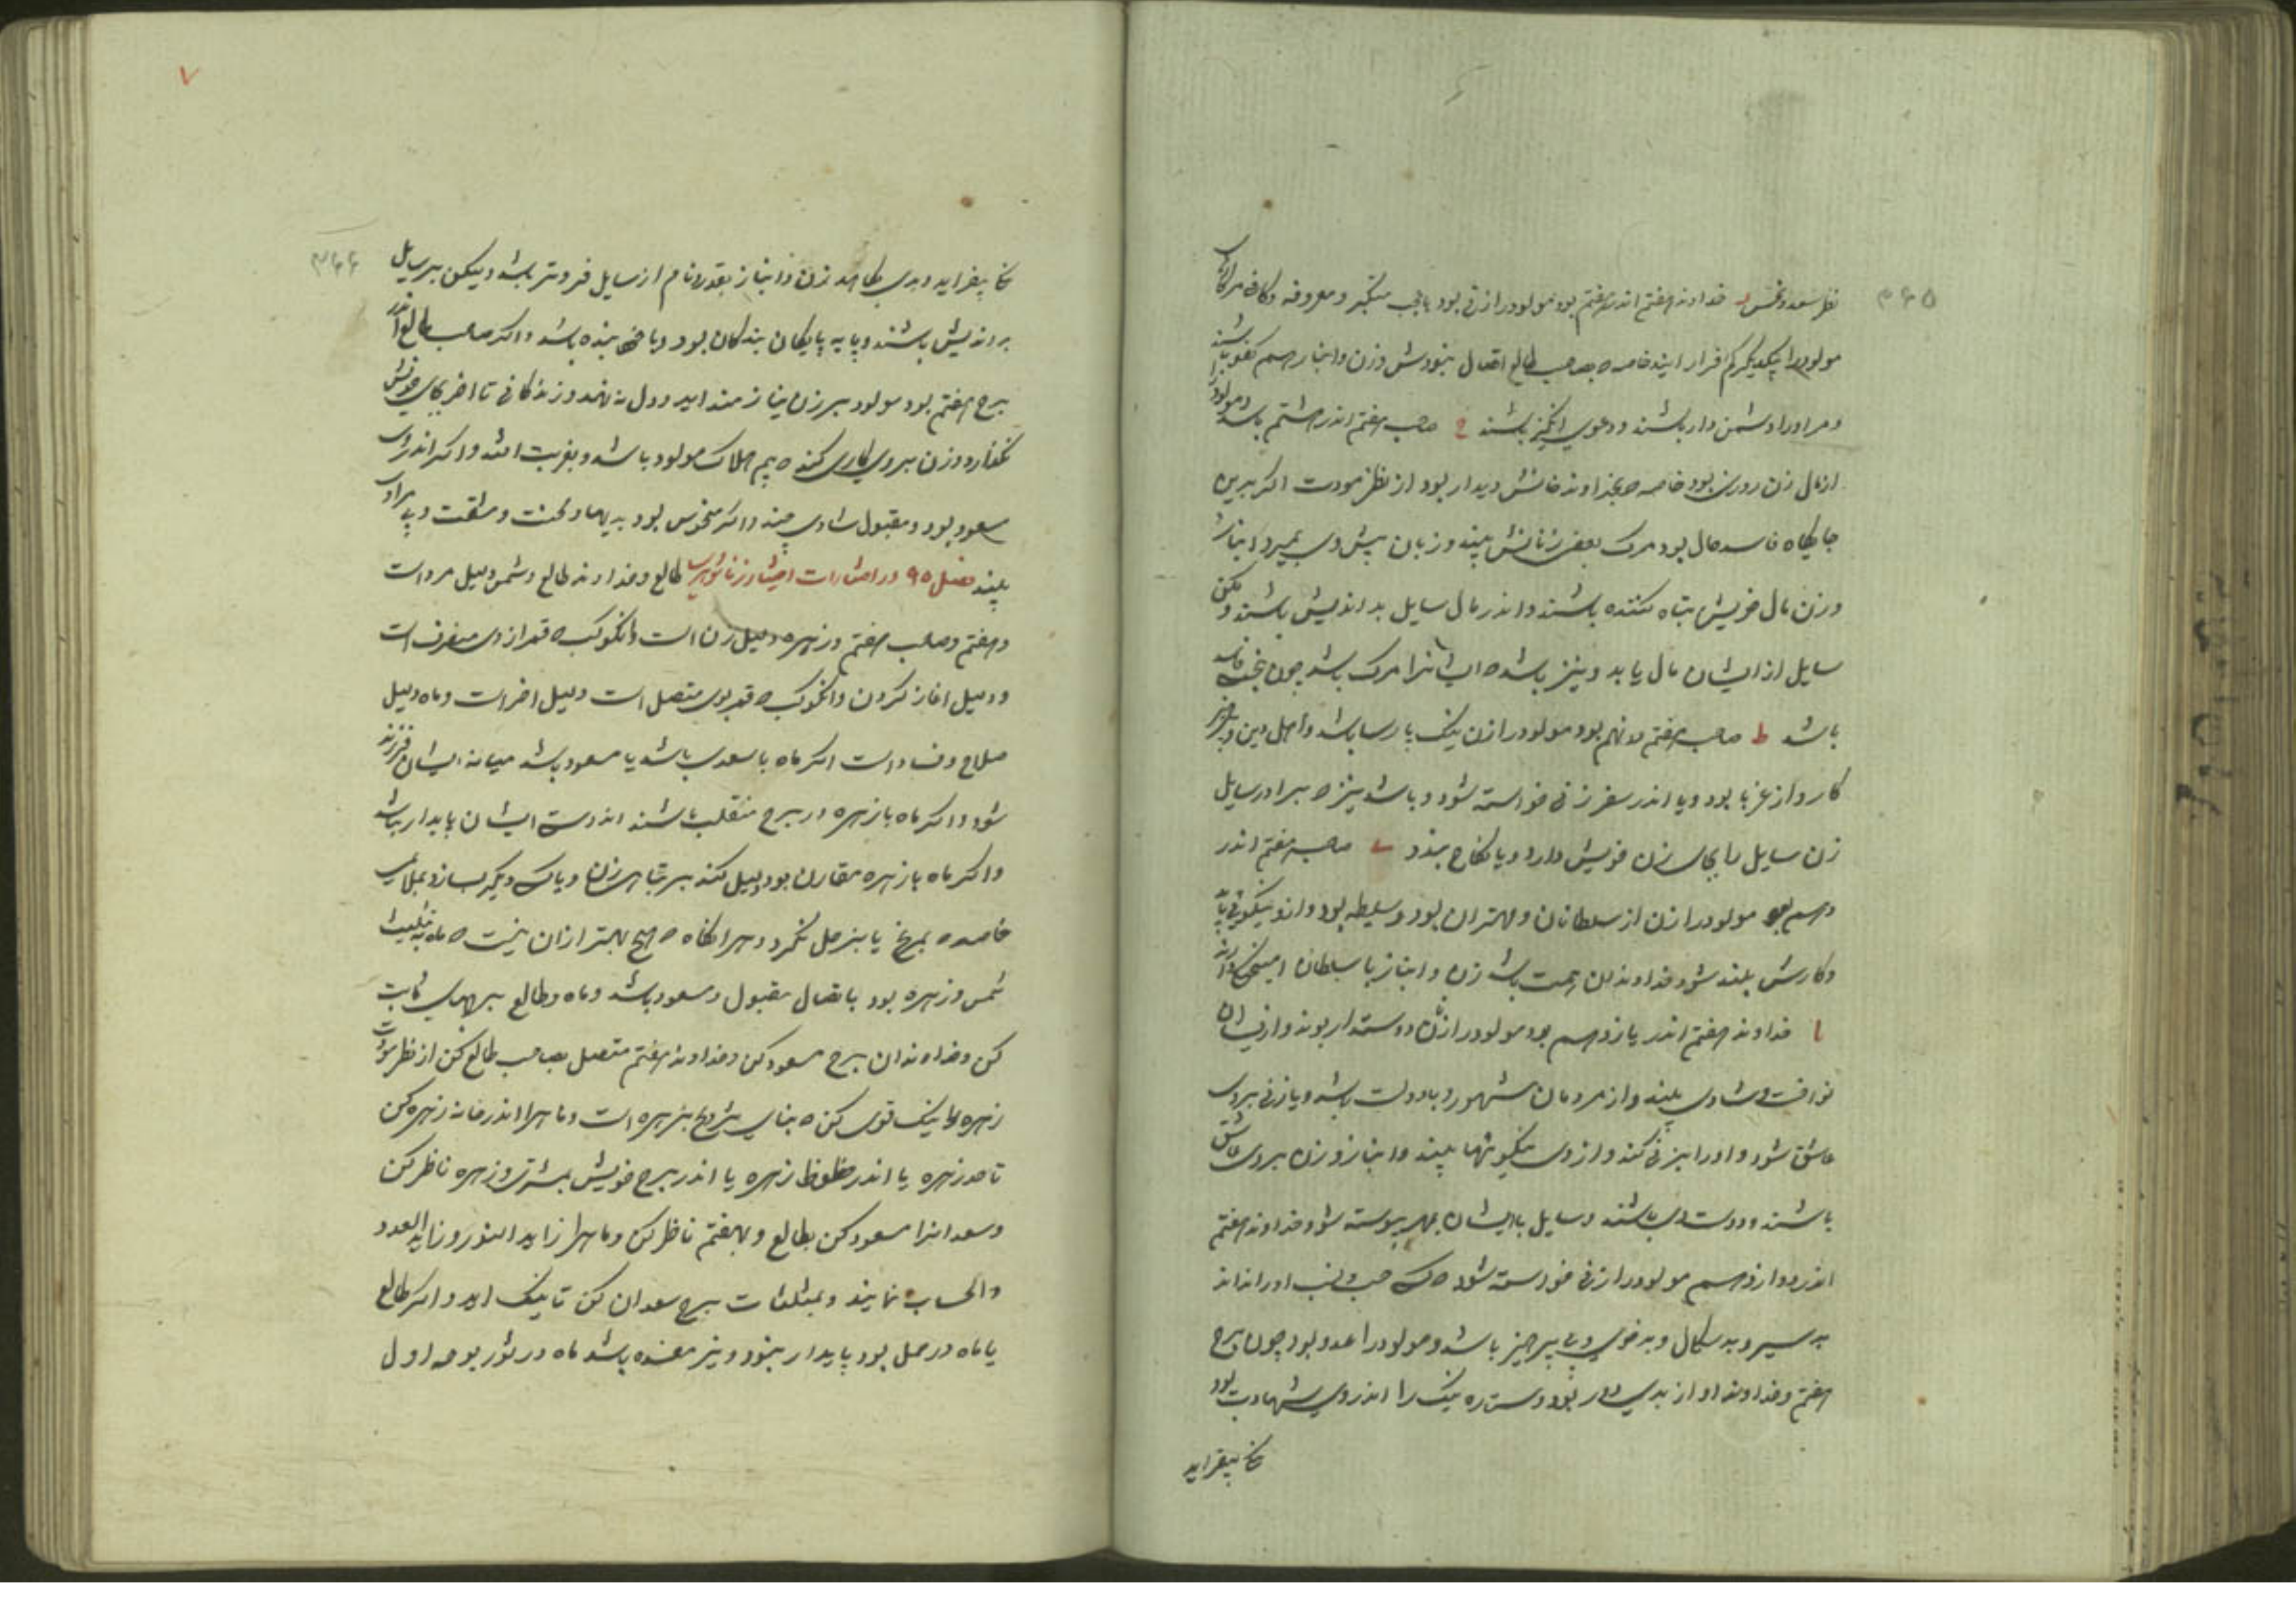 ۳۶۵
نظر سعد و نحس ز خداوند هفتم اندر هفتم بود مولود را زنی بود با عجب متکبر و معروفه
مولود را یکدیگر کم قرار آیند خاصه که بصاحب طالع اتصال بنودش و زن و انباز
و مر او را دشمن دار باشند و دعوی انگیز باشند ح صاحب هفتم اندر هشتم باشد و مولود
از مال زن روزی بود خاصه که بخداوند خانش دیدار بود از نظر مودت اگر برین
جایگاه فاسد حال بود مرگ بعض زنانش بیند و زنان پیش وی بمیرد و انباز
و زن مال خویش تباه کننده باشند و اندر مال سایل بد اندیش باشند
سایل از ایشان مال یابد و نیز باشد که ایشانرا مرگ باشد چون
باشد ط صاحب هفتم به نهم بود مولود را زن نیک پارسا باشد و اهل دین
کار و از غربا بود و یا اندر سفر زنی خواسته شود و باشد نیز که برادر سایل
زن سایل را بجای زن خویش دارد و یا نکاح بندد ی صاحب هفتم اندر
دهم بود مولود را زن از سلطانان و مهتران بود و سلیطه بود و ازو نیکویی یابد
و کارش بلند شود خداوندان همت باشد زن و انباز با سلطان
یا خداوند هفتم اندر یازدهم بود مولود را زنان دوستدار بوند و از
و شادی بیند و از مردمان مشهور و با دولت باشد و یا زنی بروی
عاشق شود و او را بزنی کند و از وی نیکوئیها بیند و انباز و زن بروی عاشق
باشند و دوست وی باشند و سایل با ایشان بمهر پیوسته شود خداوند هفتم
اندر دوازدهم مولود را زنی خواسته شود که کس حسب و نسب او را نداند
بد سیر و بد سکال و بد خوی و بی پرهیز باشد و مولود را عدو بود چون برج
هفتم و خداوند او از بدی دور بود و ستاره نیک را اندر وی شهادت بود
بیفزاید
۷
۳۶۶
بیفزاید و بدی بکاهد زن و انباز بقدر و نام از سایل فروتر باشد و لیکن بر سایل
بد اندیش باشند و یا به پایگان بندگان بود و یا خود بنده باشد و اگر صاحب طالع اندر
برج هفتم بود مولود بر زن نیازمند آید و دل بدو نهد و زندگانی تا آخر بجای خویش
نگذارد و زن بروی کاری کند که بیم هلاک مولود باشد و بغربت افتد و اگر اندر وی
سعود بود و مقبول شادی بیند و اگر منحوس بود بدیها و محنت و مشقت
بیند فصل ۹۵ در اختیارات طالع و خداوند طالع و شمس دلیل مرد است
و هفتم و صاحب هفتم و زهره دلیل زن است و آنکوکب که قمر از وی منصرف است
و دلیل آغاز کردن و آنکوکب که قمر بوی متصل است دلیل آخر است و ماه دلیل
صلاح و فساد است اگر ماه با سعدی باشد یا مسعود باشد میانه ایشان فرزند
شود و اگر ماه با زهره در برج منقلب باشند اندوست ایشان پایدار نباشد
و اگر ماه با زهره مقارن بود دلیل کند بر تباهی زن
خاصه که بمریخ یا بزحل نگرد و هر انگاه که هیچ بهتر از آن نیست که ماه به تثلیث
شمس و زهره بود با تصال مقبول و مسعود باشد و ماه و طالع ببرجهای ثابت
کن و خداوند آن برج مسعود کن و خداوند هفتم متصل بصاحب طالع کن از نظر مودت
زهره را نیک قوی کن که بنای تزویج بزهره است و ماهرا اندر خانه زهره کن
تا حد زهره یا اندر حظوظ زهره یا اندر برج خویش بمشتری و زهره ناظر کن
و سعدانرا مسعود کن بطالع و بهفتم ناظر کن و ماهرا زاید النور و زاید العدد
و الحساب نمایند و بمثلثات برج سعدان کن تا نیک آید و اگر طالع
یا ماه در حمل بود پایدار نبود و نیز مفسده باشد ماه در ثور بود اول